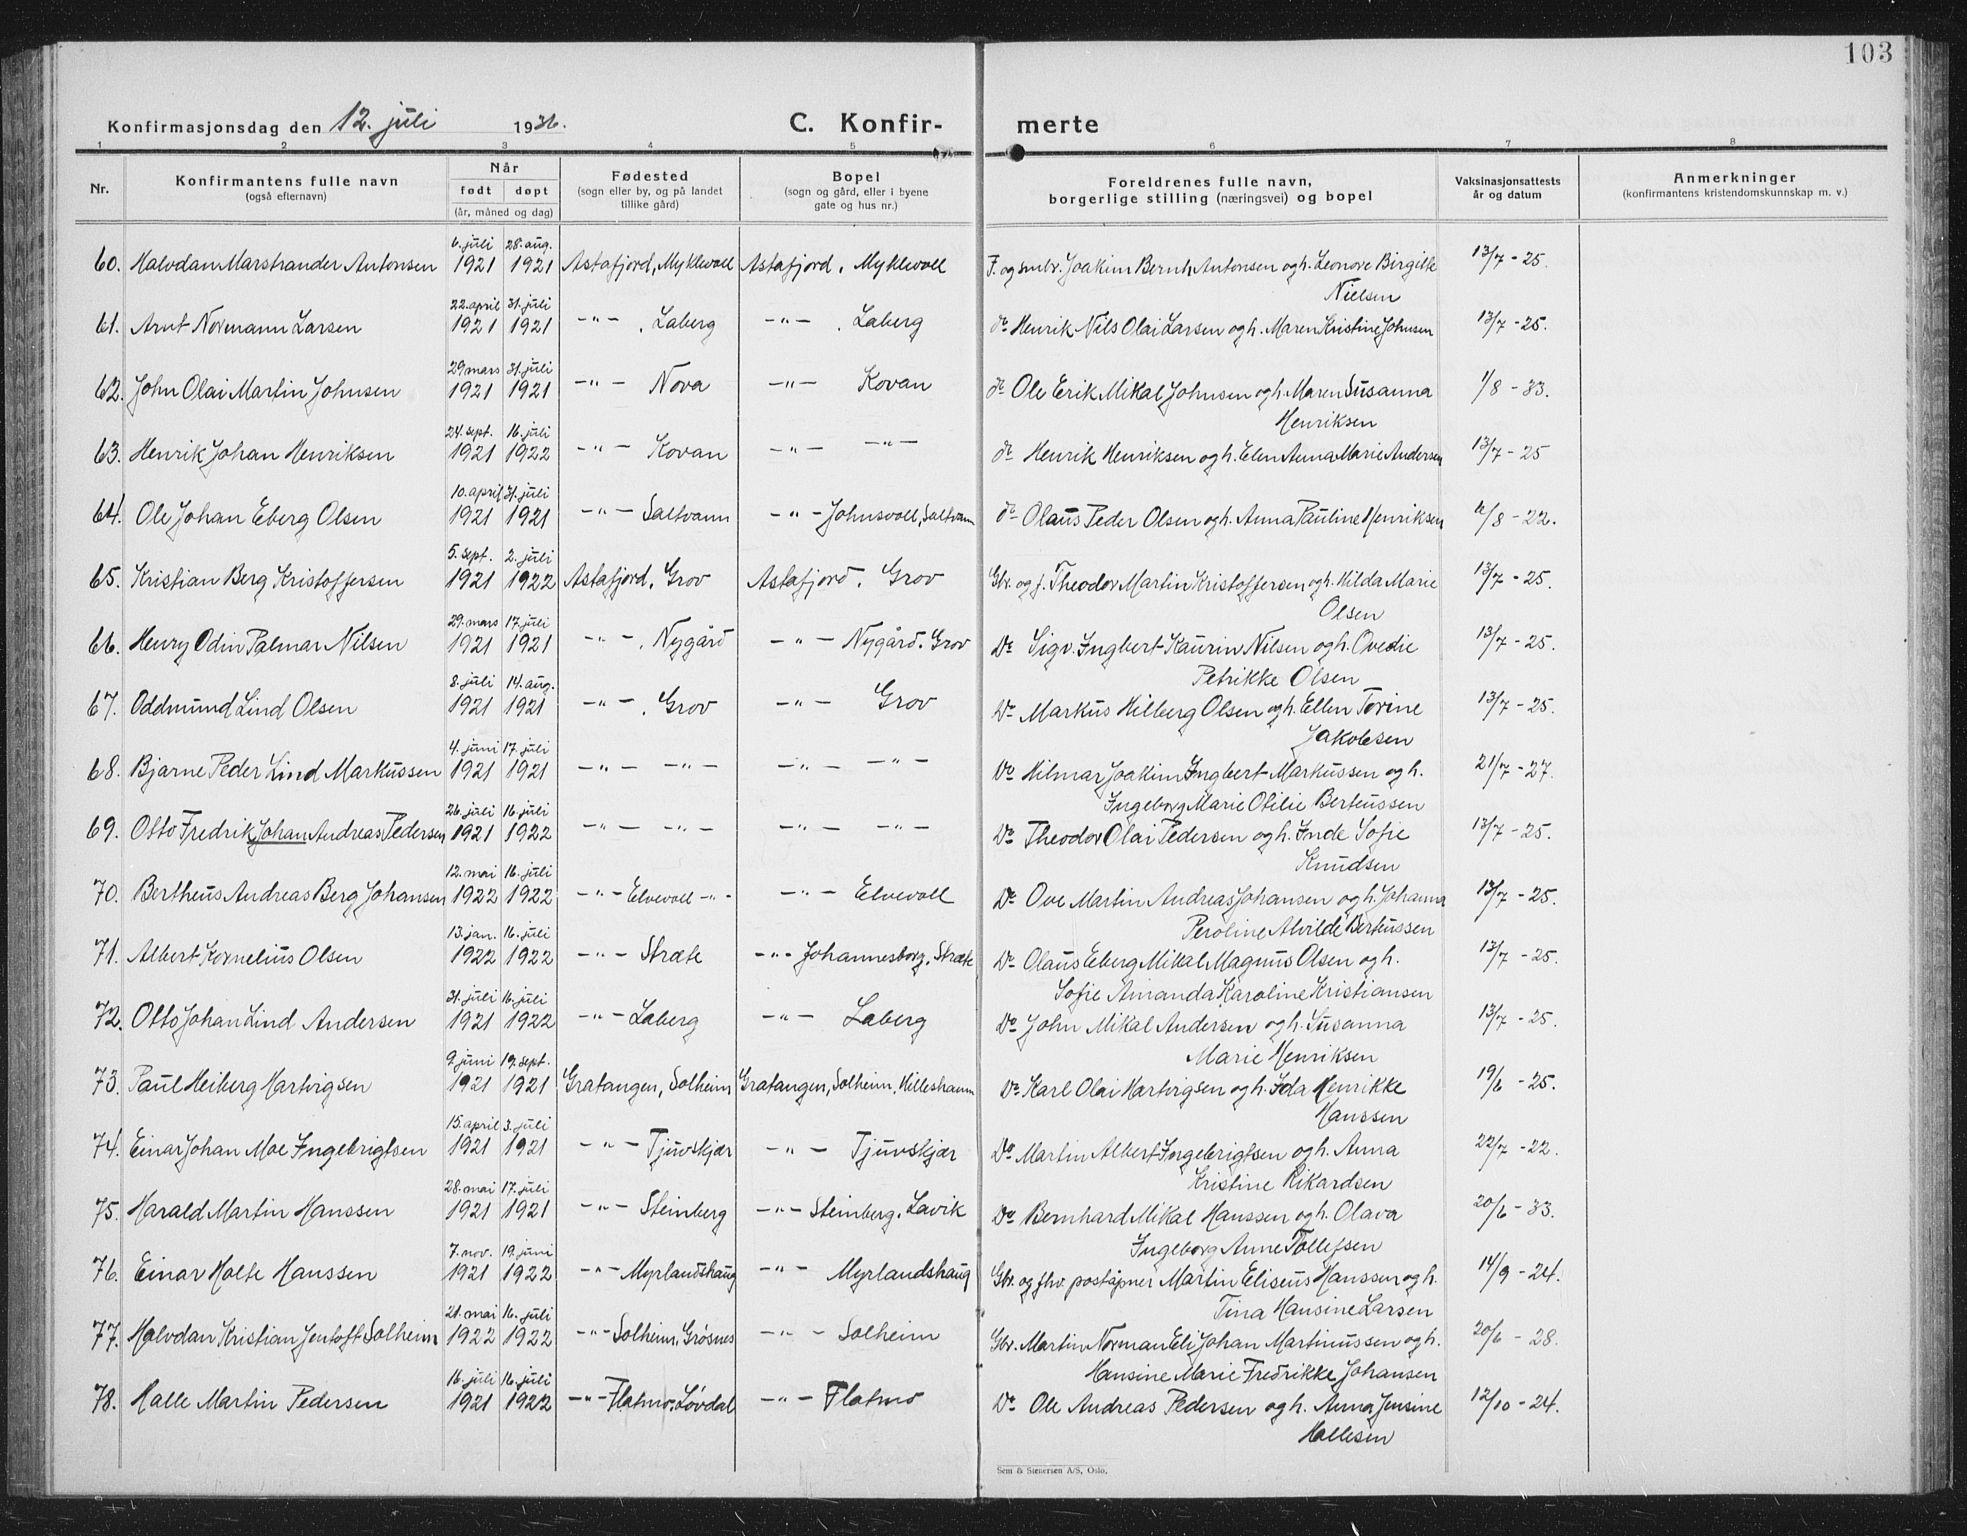 103
Konfirmasjonsdag den 12. juli 1936. C. Konfirmerte
1 2 3 4 5 6 7 8
Nr. Konfirmantens fulle navn (også efternavn) Når født døpt (år, måned og dag) Fødested (sogn eller by, og på landet tillike gård) Bopel (sogn og gård, eller i byene gate og hus nr.) Foreldrenes fulle navn, borgerlige stilling (næringsvei) og bopel Vaksinasjonsattests år og datum Anmerkninger (konfirmantens kristendomskunnskap m. v.)
60. Halvdan Marstrander Antonsen 6. juli 1921 28. aug. 1921 Astafjord, Myklevoll Astafjord, Myklevoll F. og smbr. Joakim Bernh. Antonsen og h. Leonore Birgitte Nielsen 13/7 - 25.
61. Arnt Normann Larsen 22. april 1921 31. juli 1921 -"- , Laberg -"- , Laberg do Henrik Nils Olai Larsen og h. Maren Kristine Johnsen 13/7 - 25.
62. John Olai Martin Johnsen 29 mars 1921 31. juli 1921 -"- Nova -"- Kovan do Ole Erik Mikal Johnsen og h. Maren Susanna Henriksen 1/8 - 33.
63. Henrik Johan Henriksen 24. sept. 1921 16. juli 1922 -"- Kovan -"- -"- do Henrik Henriksen og h. Elen Anna Marie Andersen 13/7 - 25
64. Ole Johan Eberg Olsen 10. april 1921 31. juli 1921 -"- Saltvann -"- Johnsvoll, Saltvann do Olaus Peder Olsen og h. Anna Pauline Henriksen /8 - 22.
65. Kristian Berg Kristoffersen 5. sept. 1921 2. juli 1922 Astafjord, Grov Astafjord, Grov Gbr. og f. Theodor Martin Kristoffersen og h. Hilda Marie Olsen 13/7 - 25.
66. Henry Odin Palmar Nilsen 29. mars 1921 17. juli 1921 -"- , Nygård -"- Nygård, Grov Do Sigv. Ingbert Kaurin Nilsen og h. Ovedie Petrikke Olsen 13/7 - 25.
67. Oddmund Lind Olsen 8. juli 1921 14. aug. 1921 -"- , Grov -"- Grov Do Markus Hilberg Olsen og h. Ellen Torine Jakobsen 13/7 - 25.
68. Bjarne Peder Lind Markussen 4. juni 1921 17. juli 1921 -"- -"- -"- -"- Do Hilmar Joakim Ingbert Markussen og h. Ingeborg Marie Otilie Berteussen 21/7 - 27.
69. Otto Fredrik Johan Andreas Pedersen 26. juli 1921 16. juli 1922 -"- -"- -"- -"- Do Theodor Olai Pedersen og h. Inde Sofie Knudsen 13/7 - 25.
70. Bertheus Andreas Berg Johansen 12. mai 1922 16. juli 1922 -"- Elvevoll -"- -"- Elvevoll Do Ove Martin Andreas Johansen og h. Johanna Peroline Alvilde Berteussen 13/7 - 25.
71. Albert Kornelius Olsen 13. jan. 1922 16. juli 1922 -"- Stræte -"- Johannesborg, Stræte Do Olaus Eberg Mikal Magnus Olsen og h. Sofie Amanda Karoline Kristiansen 13/7 - 25.
72. Otto Johan Lind Andersen 31. juli 1921 16. juli 1922 -"- Laberg -"- Laberg Do John Mikal Andersen og h. Susanna Marie Henriksen 13/7 - 25.
73. Paul Heiberg Hartvigsen 9. juni 1921 19. sept. 1921 Gratangen, Solheim Gratangen, Solheim, Hilleshamn Do Karl Olai Hartvigsen og h. Ida Henrikke Hanssen 19/6 - 25.
74. Einar Johan Moe Ingebrigtsen 15. april 1921 3. juli 1921 -"- Tjuvskjær -"- Tjuvskjær Do Martin Albert Ingebrigtsen og h. Anna Kristine Rikardsen 22/7 - 22.
75. Harald Martin Hanssen 28. mai 1921 17. juli 1921 -"- Steinberg -"- Steinberg, Lavik Do Bernhard Mikal Hanssen og h. Olava Ingeborg Anne Tollefsen 20/6 - 33.
76. Einar Holte Hanssen 7. nov. 1921 19. juni 1922 -"- Myrlandshaug -"- Myrlandshaug Gbr. og fhv. poståpner Martin Eliseus Hanssen og h. Tina Hansine Larsen 14/9 - 24.
77. Halvdan Kristian Jentoft Solheim 21. mai 1922 16. juli 1922 -"- Solheim, Grøsnes -"- Solheim Gbr. Martin Norman Eli Johan Martinussen og h. Hansine Marie Fredrikke Johansen 20/6 - 28.
78. Halle Martin Pedersen 16. juli 1921 16. juli 1922 -"- Flatmo, Løvdal -"- Flatmo Do Ole Andreas Pedersen og h. Anna Jensine Hallesen 12/10 - 24.
Sem & Stenersen A/S, Oslo.